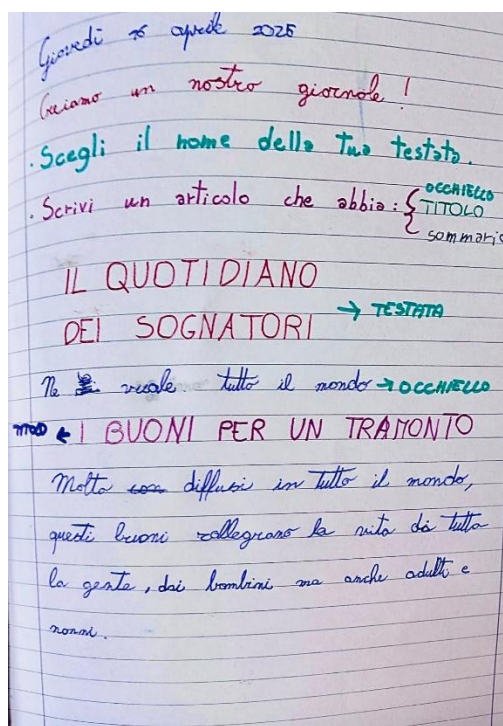 Giovedì aprile 2025
Creiamo un nostro giornale!
. Scegli il nome della tua testata.
. Scrivi un articolo che abbia: { OCCHIELLO
TITOLO
sommario
IL QUOTIDIANO
DEI SOGNATORI → TESTATA
Ne vuole tutto il mondo → OCCHIELLO
TITOLO ← I BUONI PER UN TRAMONTO
Molto diffusi in tutto il mondo,
questi buoni rallegrano la vita di tutta
la gente, dai bambini ma anche adulti e
nonni.